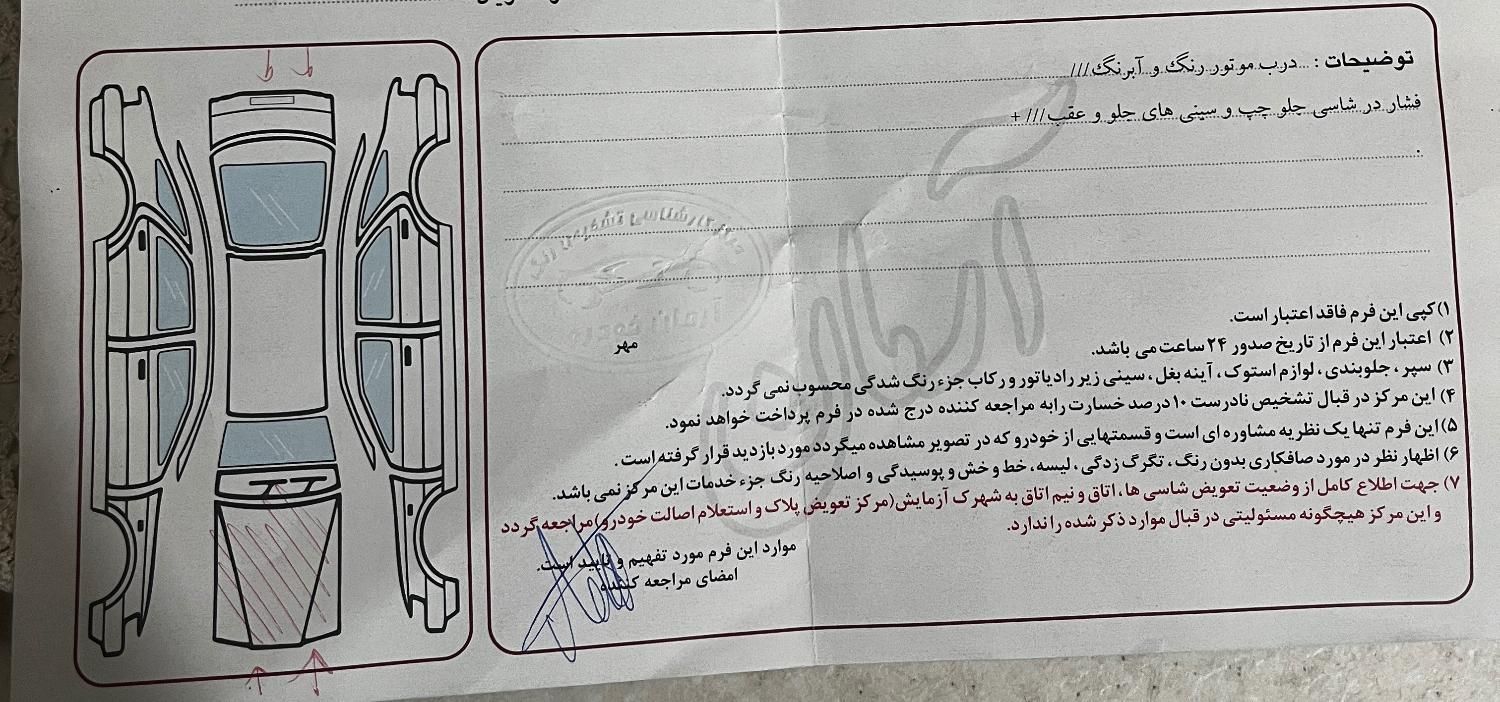 توضیحات : درب موتور رنگ و آبرنگ///
فشار در شاسی جلو چپ و سینی های جلو و عقب/// +
.
کارشناسی تشخیص رنگ
مهر
۱)کپی این فرم فاقد اعتبار است.
۲) اعتبار این فرم از تاریخ صدور ۲۴ ساعت می باشد.
۳) سپر ، جلوبندی ، لوازم استوک ، آینه بغل ، سینی زیر رادیاتور و رکاب جزء رنگ شدگی محسوب نمی گردد.
۴) این مرکز در قبال تشخیص نادرست ۱۰ درصد خسارت را به مراجعه کننده درج شده در فرم پرداخت خواهد نمود.
۵) این فرم تنها یک نظریه مشاوره ای است و قسمتهایی از خودرو که در تصویر مشاهده میگردد مورد بازدید قرار گرفته است .
۶) اظهار نظر در مورد صافکاری بدون رنگ ، تگرگ زدگی ، لیسه ، خط و خش و پوسیدگی و اصلاحیه رنگ جزء خدمات این مرکز نمی باشد.
۷) جهت اطلاع کامل از وضعیت تعویض شاسی ها ، اتاق و نیم اتاق به شهرک آزمایش(مرکز تعویض پلاک و استعلام اصالت خودرو)مراجعه گردد
و این مرکز هیچگونه مسئولیتی در قبال موارد ذکر شده را ندارد.
موارد این فرم مورد تفهیم و تایید است.
امضای مراجعه کننده